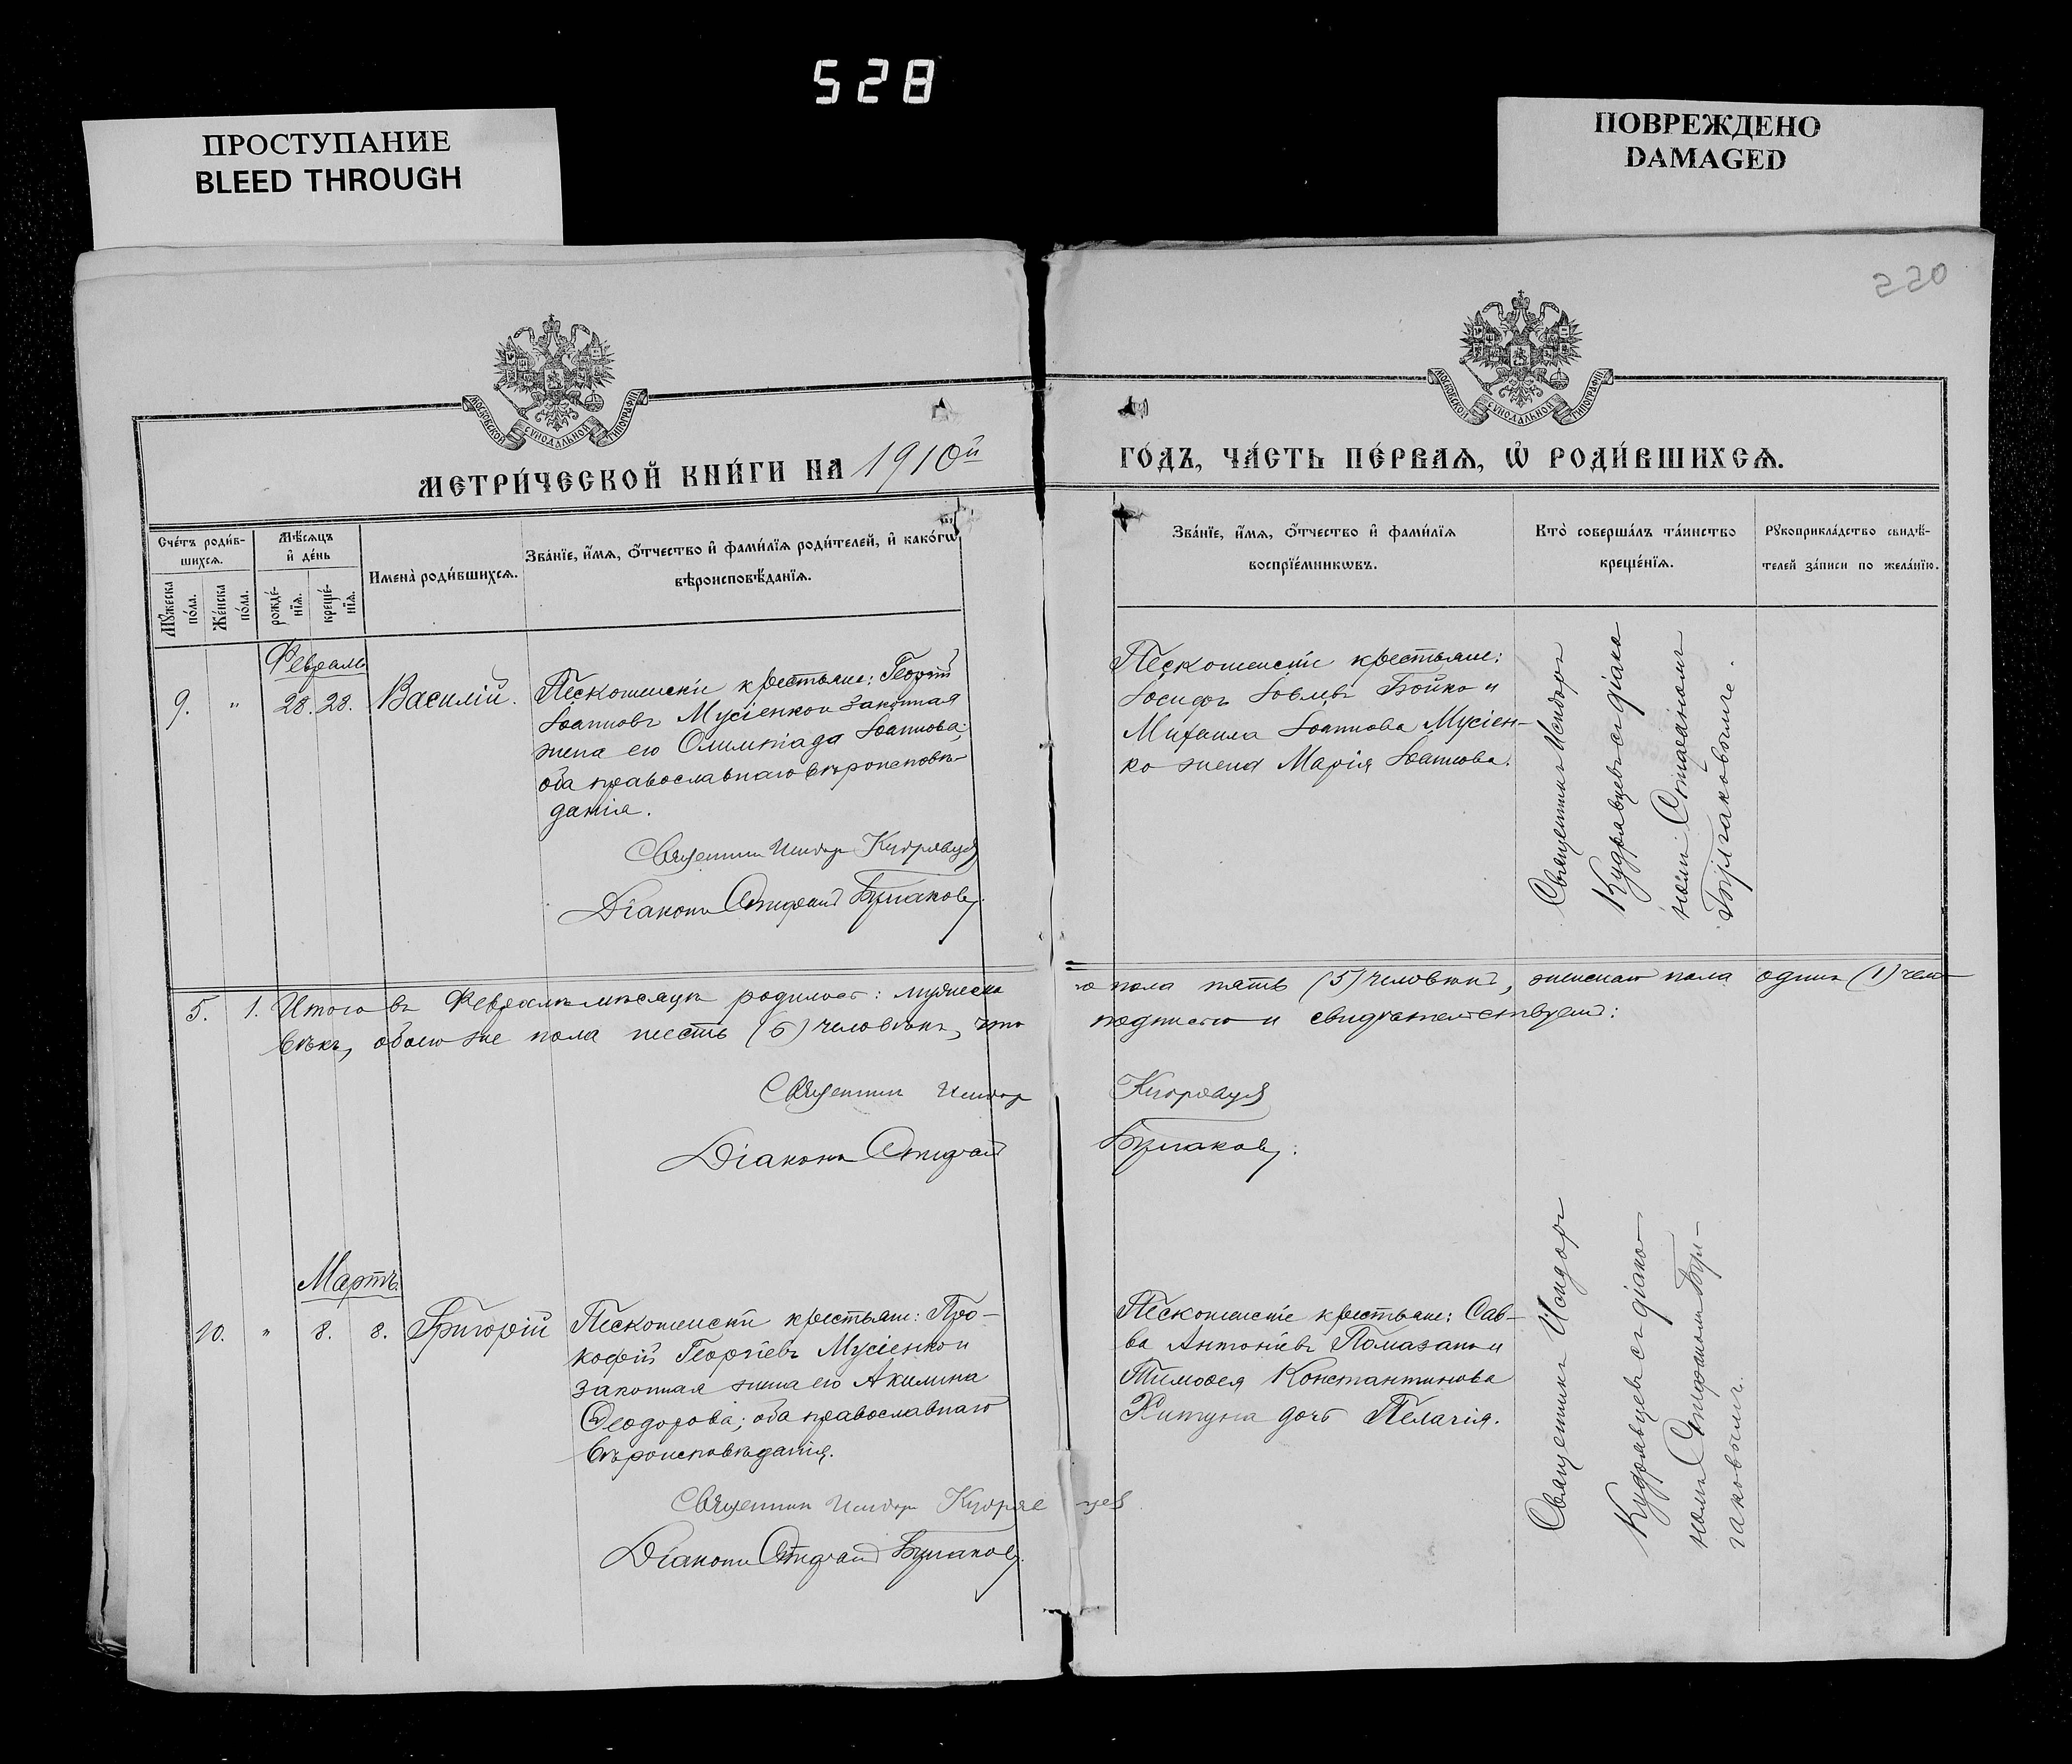 528
ПРОСТУПАНИЕ
BLEED THROUGH
ПОВРЕЖДЕНО
DAMAGED
220
МОСКОВСКОЙ СѴНОДАЛЬНОЙ ТИПОГРАФІИ
МОСКОВСКОЙ СѴНОДАЛЬНОЙ ТИПОГРАФІИ
МЕТРИ́ЧЕСКОЙ КНИ́ГИ НА 1910й
ГО́ДЪ, ЧА́СТЬ ПЕ́РВАѦ, Ѡ҆ РОДИ́ВШИХСѦ.
Сче́тъ роди́в-
шихсѧ.
Мꙋ́жеска
по́ла.
Же́нска
по́ла.
Мѣ́сяцъ
и҆ де́нь
рожде́-
нїѧ.
креще́-
нїѧ.
Имена̀ роди́вшихсѧ.
Зва́нїе, и҆́мѧ, ѻ҆́тчество и҆ фами́лїѧ роди́телей, и҆ како́гѡ
вѣроисповѣ́данїѧ.
Зва́нїе, и҆́мѧ, ѻ҆́тчество и҆ фами́лїѧ
воспрїе́мникѡвъ.
Кто̀ соверша́лъ та́инство
креще́нїѧ.
Рꙋкоприкла́дство свидѣ́-
телей за́писи по жела́нїю.
Февраль
9. " 28. 28. Василій.
Пескошинскіе крестьяне: Георгій
Іоанновъ Мусіенко и законная
жена его Олимпіада Іоаннова;
оба православнаго вѣроисповѣ-
данія.
Священник Исидор Кудрявцев
Діаконъ Стефанъ Булгаковъ.
Іосифъ Іовлевъ Бойко и
Михаила Іоаннова Мусіен-
ко жена Марія Іоаннова.
Священникъ Исидоръ
Кудрявцевъ съ діако
номъ Стефаномъ
Булгаковымъ.
5. 1. Итого въ Февралѣ мѣсяцѣ родилось: мужеска
го пола пять (5) человѣкъ, женскаго пола одинъ (1) чело
вѣкъ, обоего же пола шесть (6) человѣкъ, что
подписью и свидѣтельствуемъ:
Священник Исидор Кудрявцев
Діаконъ Стефанъ Булгаковъ:
Мартъ.
10. " 8. 8. Григорій
крестьяне: Про-
кофій Георгіевъ Мусіенко и
законная жена его Акилина
Ѳеодорова; оба православнаго
вѣроисповѣданія.
Священник Исидор Кудрявцев
Діаконъ Стефанъ Булгаковъ.
крестьяне: Сав-
ва Антоніевъ Помазанъ и
Тимоѳея Константинова
Хитуна дочь Пелагія.
Священникъ Исидоръ
Кудрявцевъ съ діако-
номъ Стефаномъ Бул-
гаковымъ.